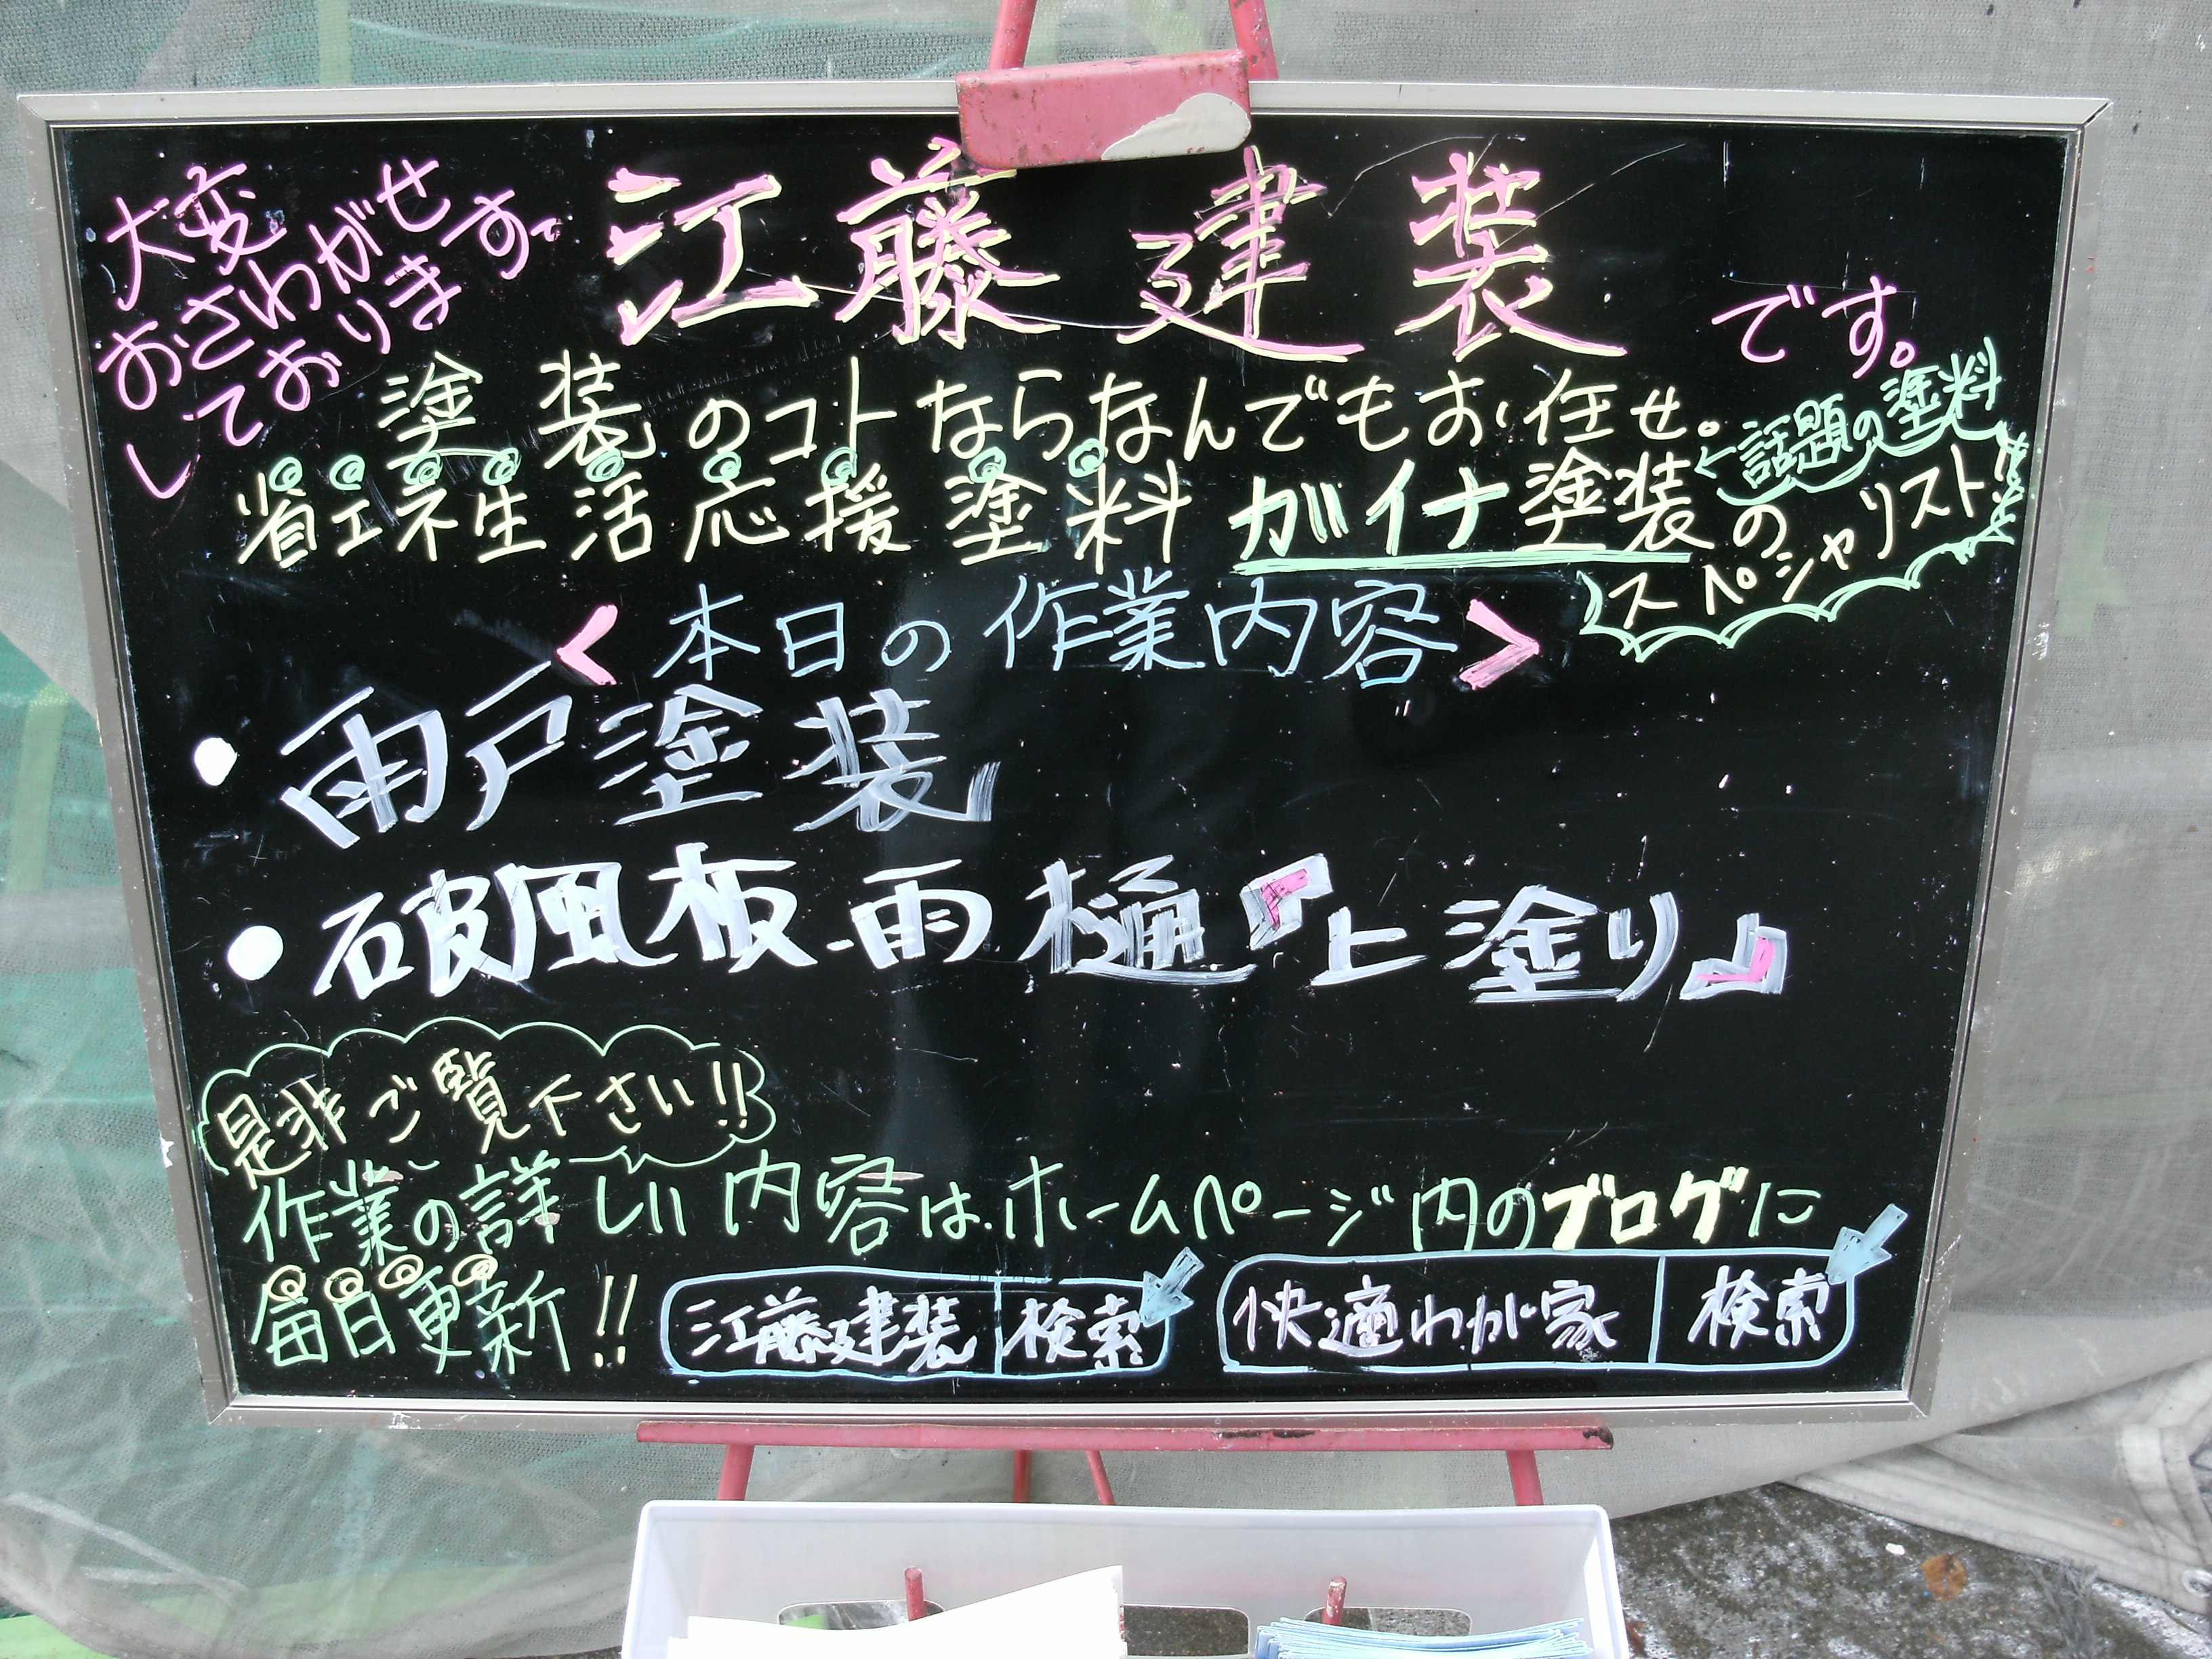 大変
おさわがせ
しております。
江藤建装
です。
塗装のコトならなんでもお任せ。
←話題の塗料
省エネ生活応援塗料 ガイナ塗装の
スペシャリスト!
<本日の作業内容>
・雨戸塗装
・破風板・雨樋『上塗り』
是非ご覧下さい!!
作業の詳しい内容はホームページ内のブログに
毎日更新!!
江藤建装 検索
快適わが家 検索